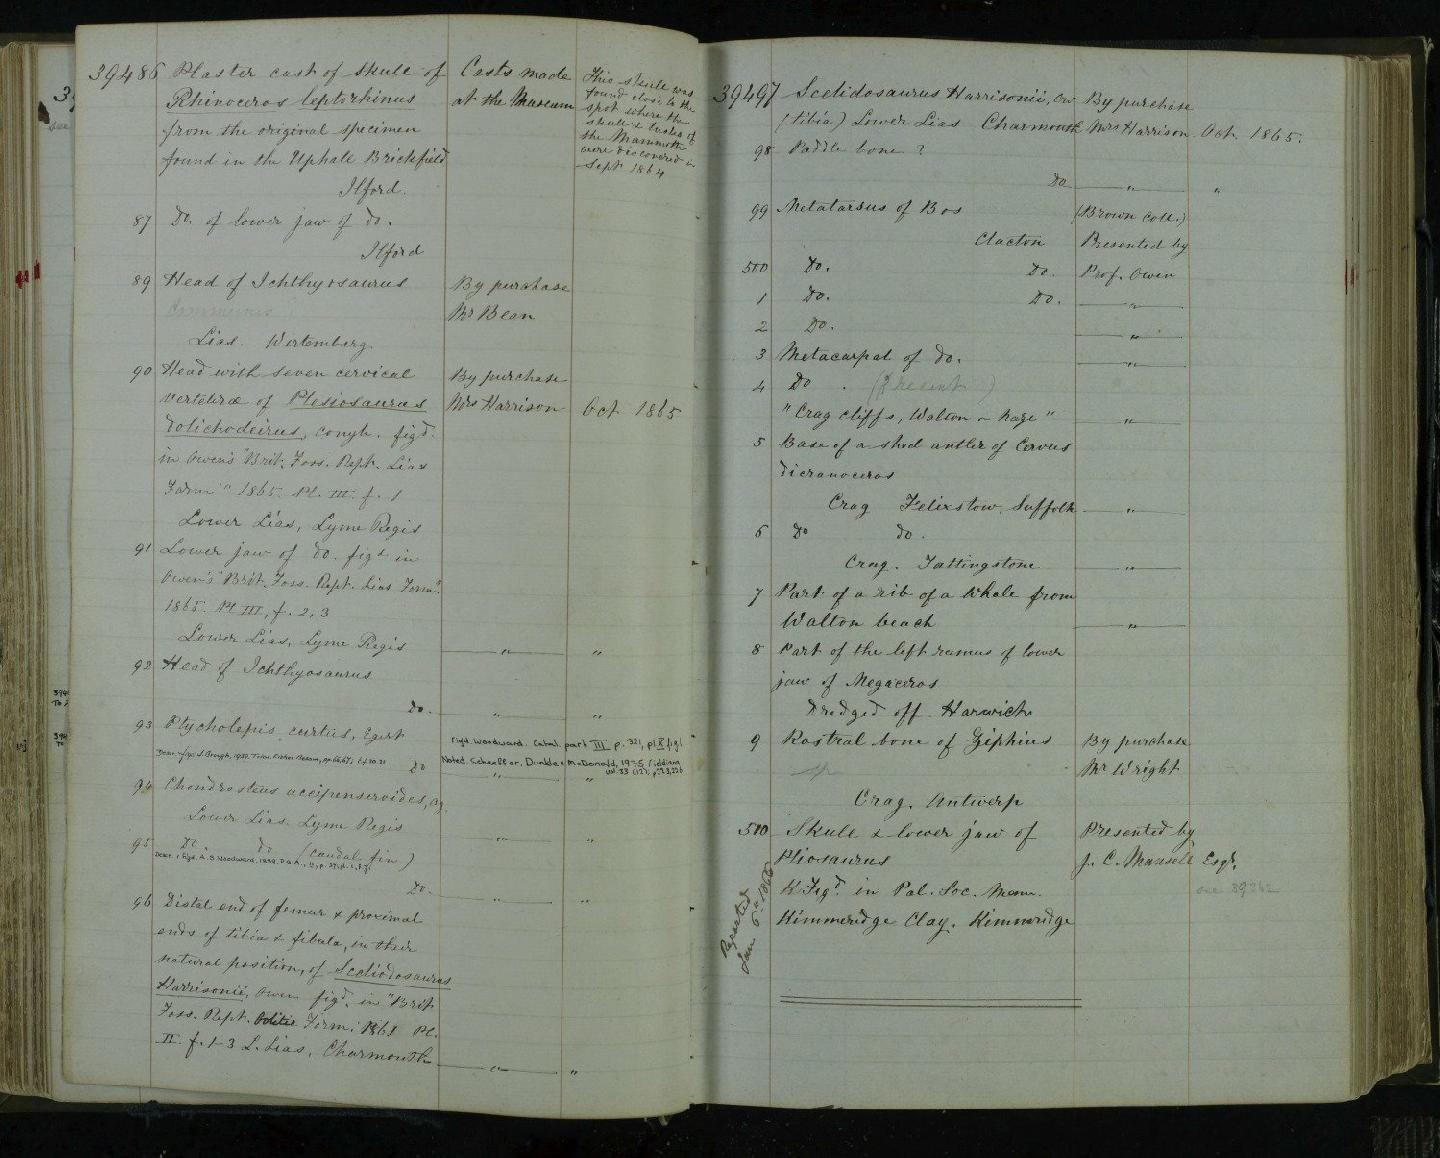 39486 Plaster cast of skull of
Rhinoceros leptorhinus
from the original specimen
found in the Uphall Brickfield
Ilford.
Casts made
at the Museum
This skull was
found close to the
spot where the
skull & tusks of
the Mammoth
were discovered in
Sept 1864
87 Do. of lower jaw of do.
Ilford
89 Head of Ichthyosaurus
communis
Lias. Wirtemberg
By purchase
Mr Bean
90 Head with seven cervical
vertebræ of Plesiosaurus
dolichodeirus, Conyb. figd.
in Owen's "Brit. Foss. Rept. Lias
Form" 1865. Pl. III. f. 1
Lower Lias, Lyme Regis
By purchase
Mrs Harrison
Oct 1865
91 Lower jaw of do. figd in
Owen's "Brit. Foss. Rept. Lias Form."
1865. Pl III, f. 2, 3
Lower Lias, Lyme Regis
" "
92 Head of Ichthyosaurus
Do. " "
93 Ptycholepis curtus, Egert
Do " "
Figd. Woodward. Catal. part III p. 321, pl X fig 1
Noted. Schaeffer, Dunkle & McDonald, 1975 Fieldiana
vol. 33 (12),
94 Chondrosteus accipenseroides, Ag.
Lower Lias. Lyme Regis
" "
95 Do. do (caudal fin)
Descr. & figd. A. S. Woodward, 1889.
Do. " "
96 Distal end of femur & proximal
ends of tibia & fibula, in their
natural position, of Sceliodosaurus
Harrisonii, Owen figd. in "Brit
Foss. Rept. Oolitic Form. 1861 Pl.
II f. 1-3 L. Lias, Charmouth
" "
39497 Scelidosaurus Harrisonii, Ow
(tibia) Lower Lias Charmouth
By purchase
Mrs Harrison Oct. 1865.
98 Paddle bone ?
Do " "
99 Metatarsus of Bos
Clacton
(Brown Coll.)
Presented by
Prof. Owen
500 Do. Do.
1 Do. Do. "
2 Do. "
3 Metacarpal of do. "
4 Do . (Phesent)
"Crag cliffs, Walton - Naze" "
5 Base of a shed antler of Cervus
dicranoceros
Crag Felixstow, Suffolk "
6 Do do.
Crag. Tattingstone "
7 Part of a rib of a Whale from
Walton beach "
8 Part of the left ramus of lower
jaw of Megaceros
Dredged off Harwich
9 Rostral bone of Ziphius
Crag. Antwerp
By purchase
Mr Wright
510 Skull & lower jaw of
Pliosaurus
Figd. in Pal. Soc. Mem.
Kimmeridge Clay. Kimmeridge
Presented by
J. C. Mansell Esqr.
see 39362
Reported
Jan 6th 1866